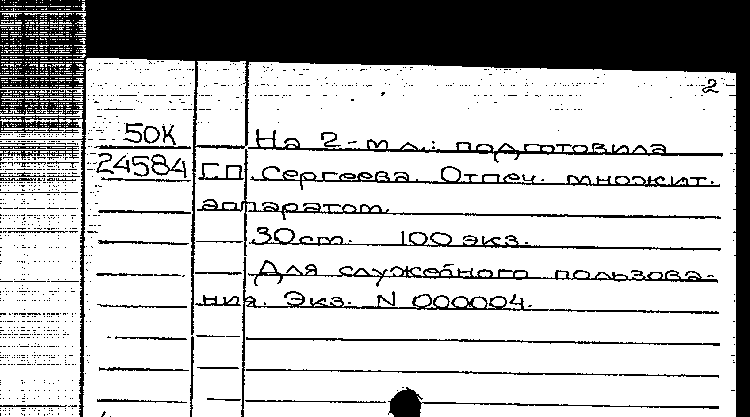 2
50К На 2-м л.: подготовила
24584 Г.П. Сергеева. Отпеч. множит.
аппаратом.
30 см. 100 экз.
Для служебного пользова-
ния. Экз. N 000004.